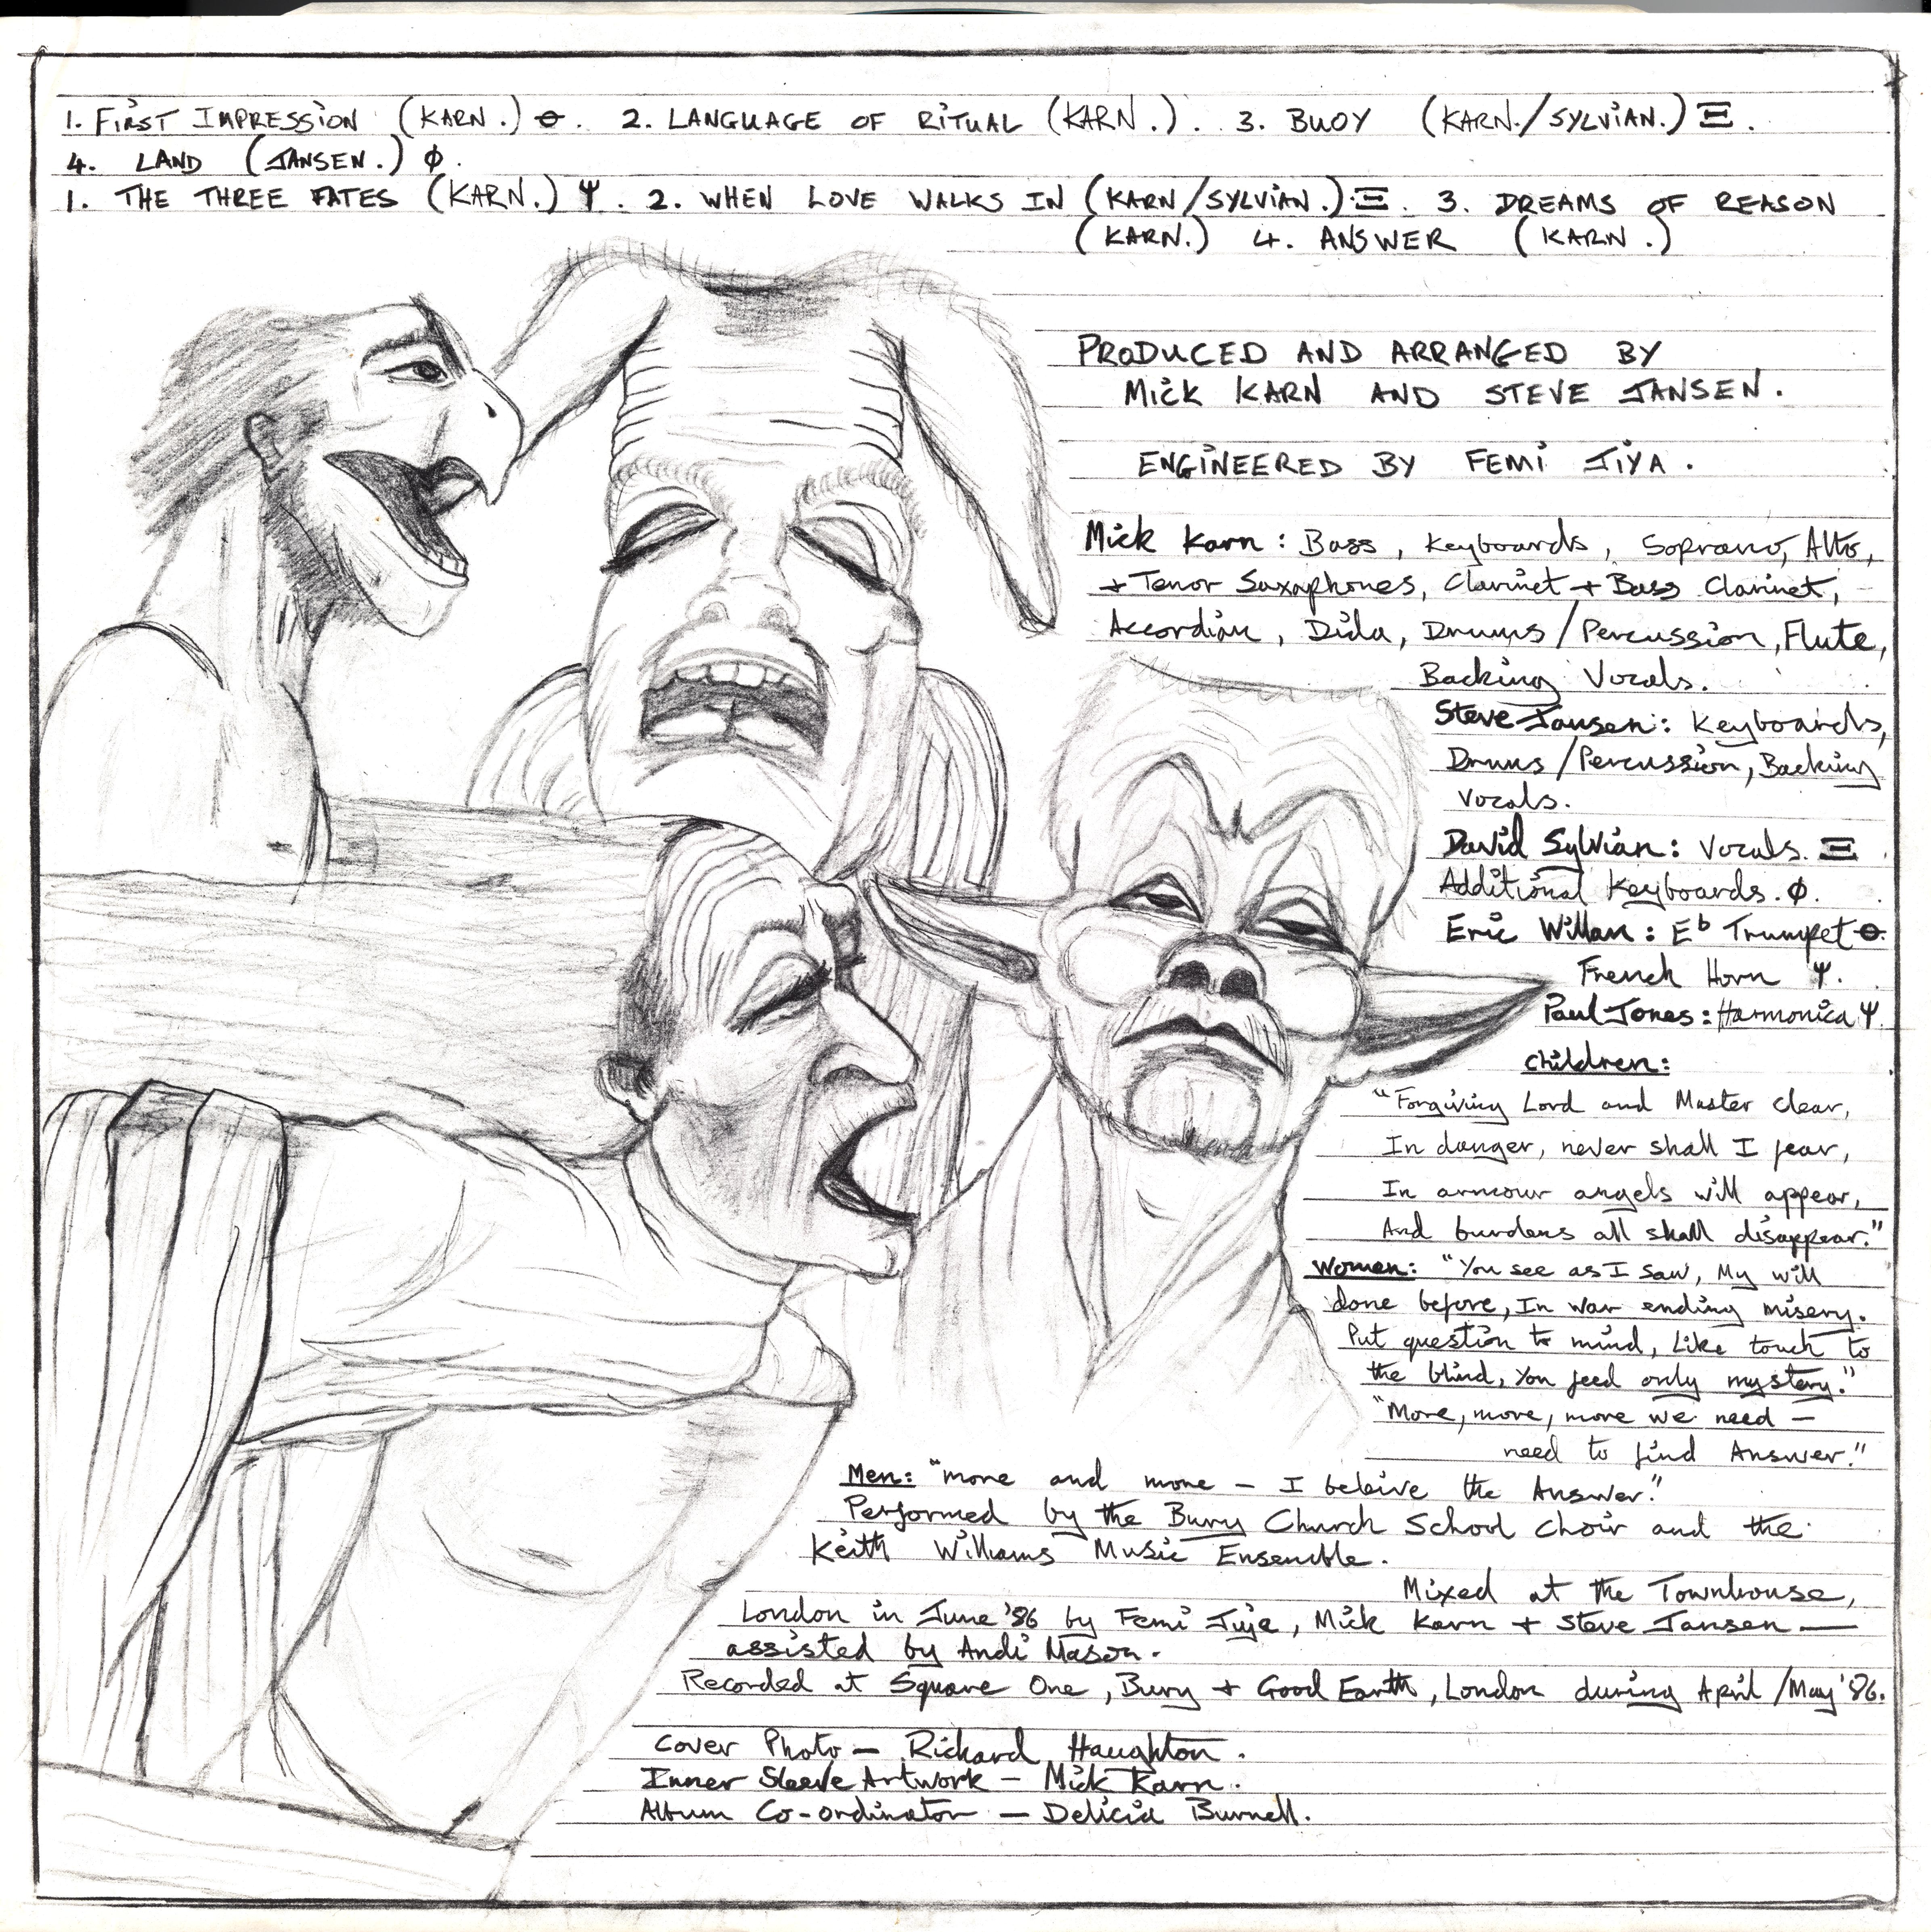 1. FIRST IMPRESSION (KARN.) ⊖. 2. LANGUAGE OF RITUAL (KARN.). 3. BUOY (KARN./SYLVIAN.) Ξ.
4. LAND (JANSEN.) ϕ.
1. THE THREE FATES (KARN.) Ψ. 2. WHEN LOVE WALKS IN (KARN/SYLVIAN.). Ξ. 3. DREAMS OF REASON
(KARN.) 4. ANSWER (KARN.)
PRODUCED AND ARRANGED BY
MICK KARN AND STEVE JANSEN.
ENGINEERED BY FEMI JIYA.
Mick Karn: Bass, Keyboards, Soprano, Alto,
+ Tenor Saxaphones, Clarinet + Bass Clarinet,
Accordian, Dida, Drums/Percussion, Flute,
Backing Vocals.
Steve Jansen: Keyboards,
Drums/Percussion, Backing
Vocals.
David Sylvian: Vocals. Ξ.
Additional Keyboards. ϕ.
Eric Willan: E♭ Trumpet ⊖.
French Horn Ψ.
Paul Jones: Harmonica Ψ.
Children:
"Forgiving Lord and Master clear,
In danger, never shall I fear,
In armour angels will appear,
And burdens all shall disappear."
Women: "You see as I saw, My will
done before, In war ending misery.
Put question to mind, Like touch to
the blind, You feed only mystery."
"More, more, more we need —
need to find Answer."
Men: "more and more — I beleive the Answer."
Performed by the Bury Church School Choir and the
Keith Williams Music Ensemble.
Mixed at the Townhouse,
London in June '86 by Femi Jiya, Mick Karn + Steve Jansen —
assisted by Andi Mason.
Recorded at Square One, Bury + Good Earth, London during April/May '86.
Cover Photo — Richard Haughton.
Inner Sleeve Artwork — Mick Karn.
Album Co-ordinator — Delicia Burnell.